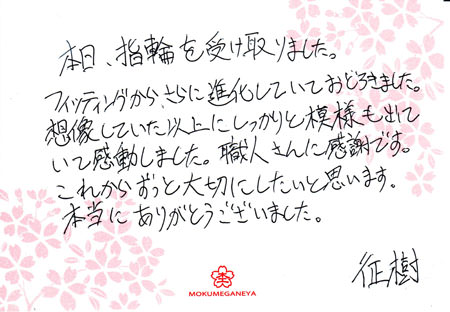 本日、指輪を受け取りました。
フィッティングから、さらに進化していておどろきました。
想像していた以上にしっかりと模様も出て
いて感動しました。職人さんに感謝です。
これからずっと大切にしたいと思います。
本当にありがとうございました。
征樹
MOKUMEGANEYA